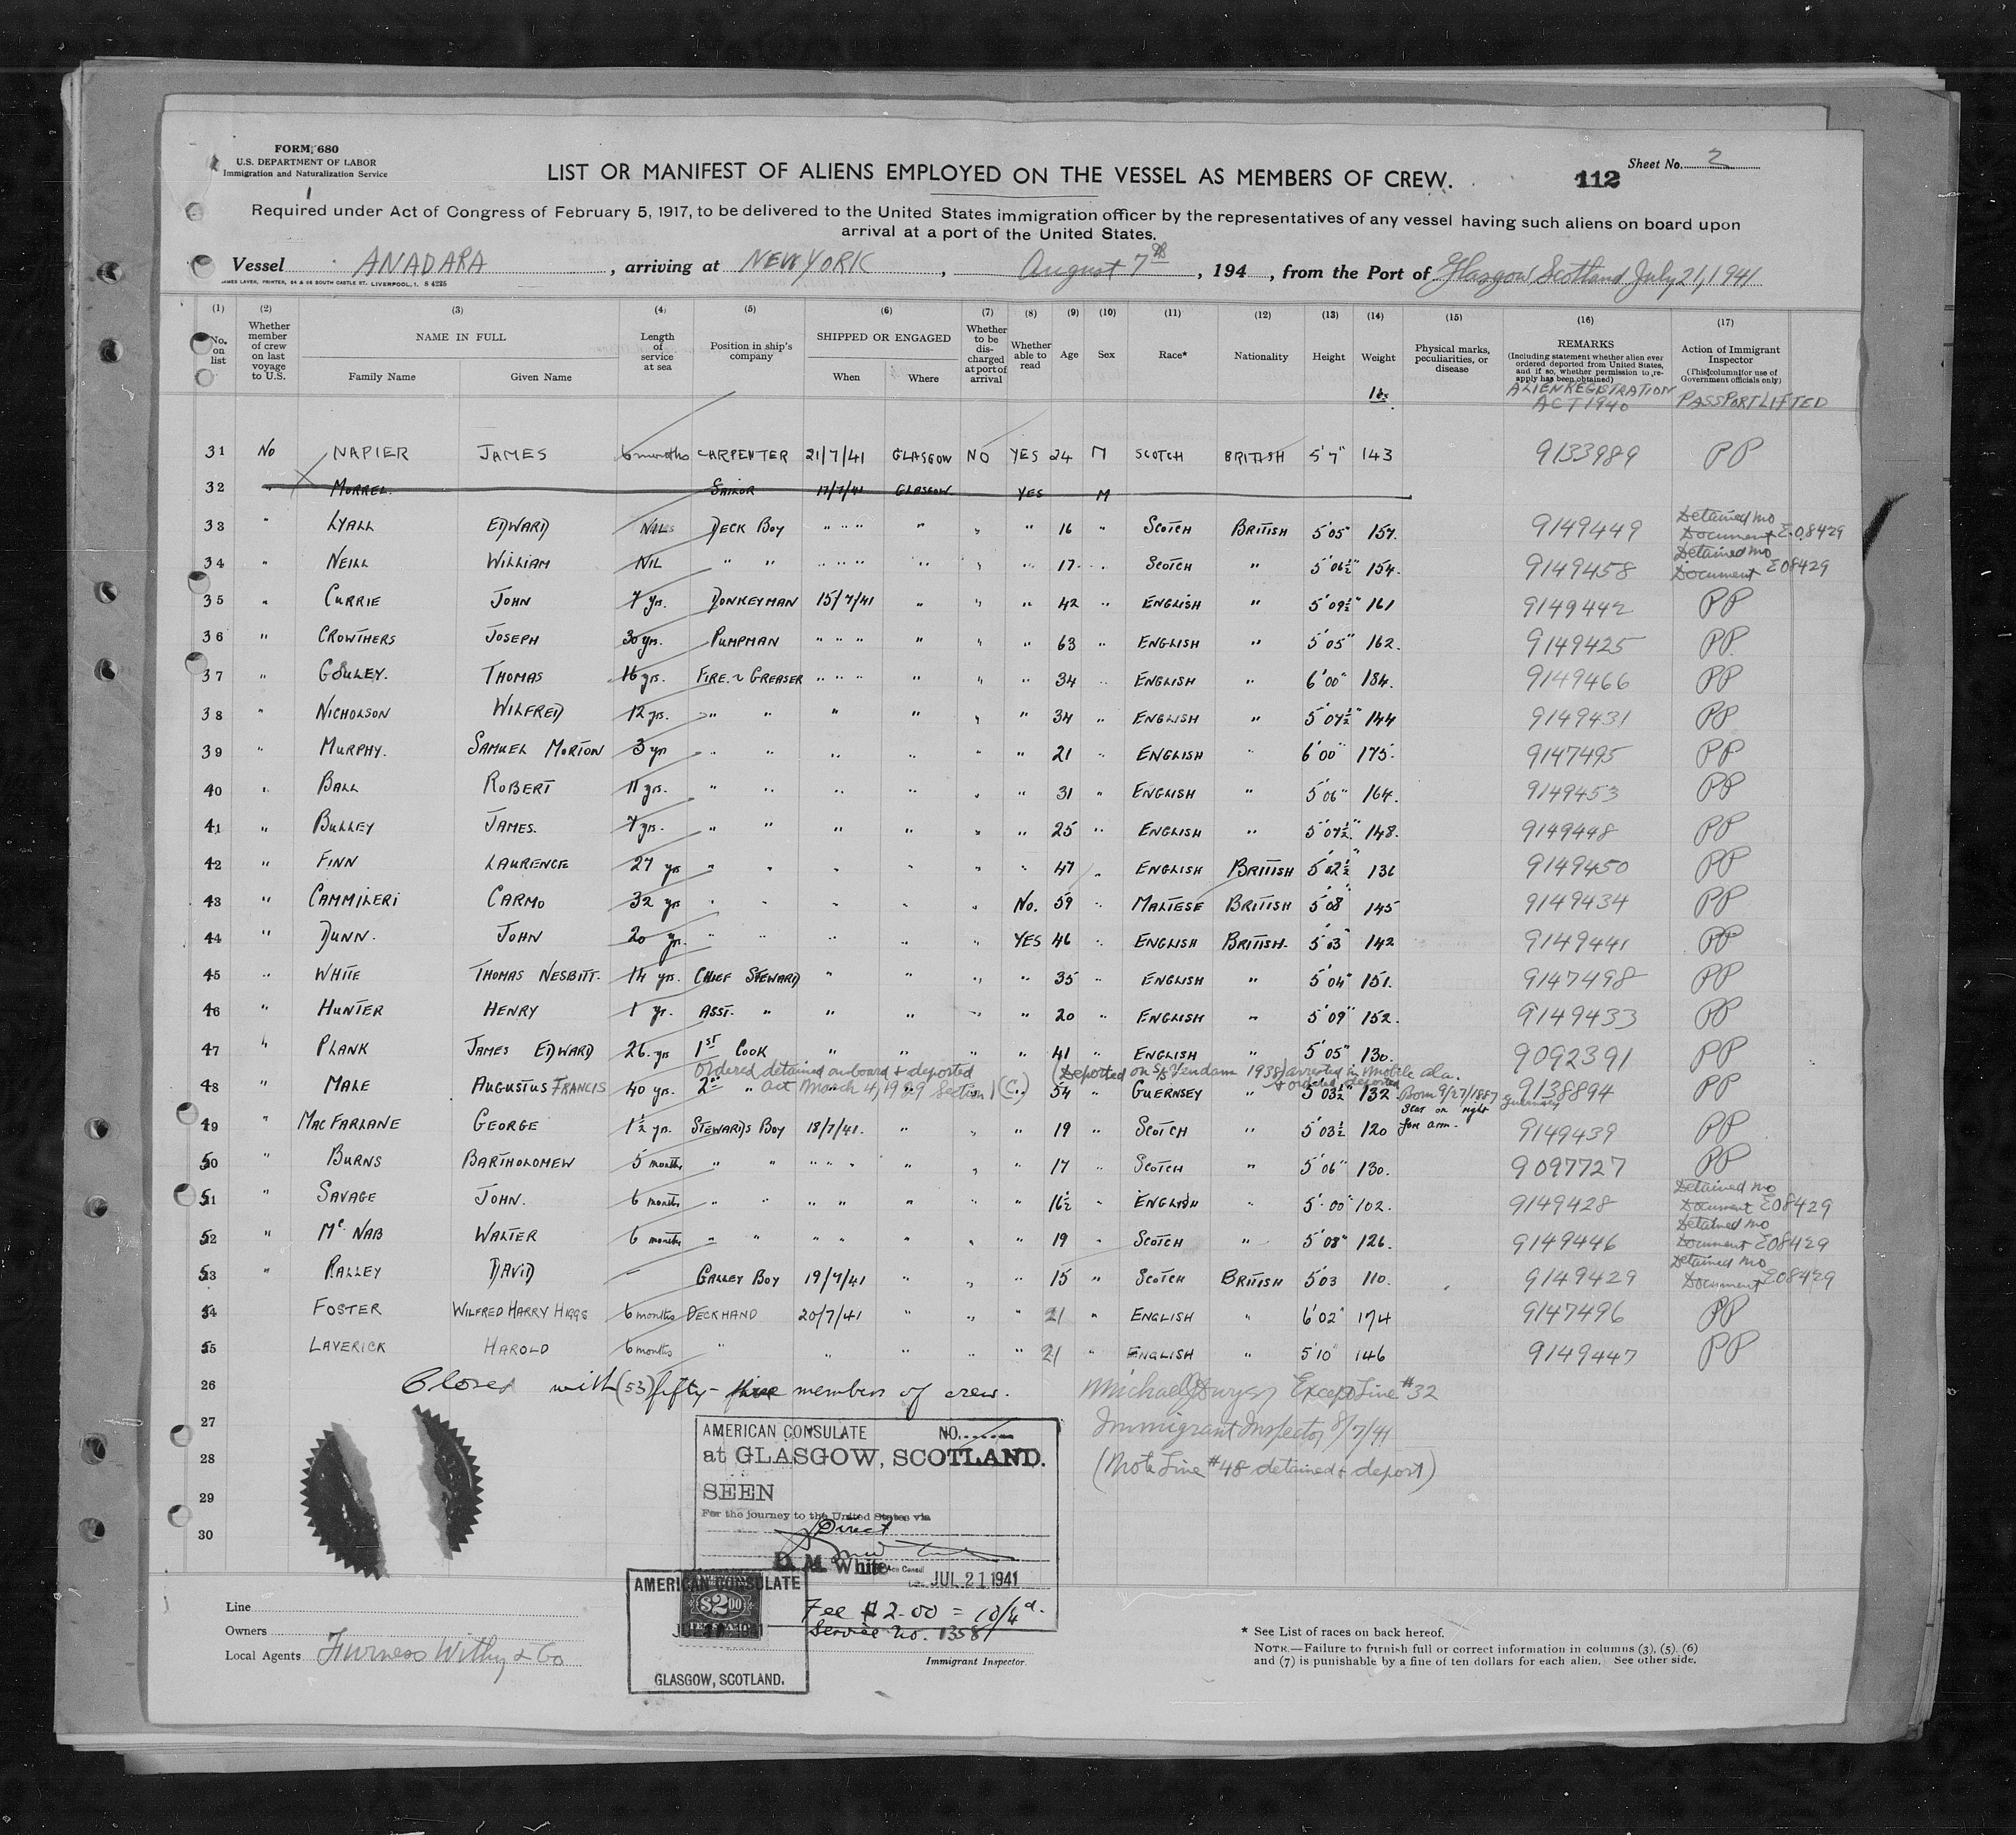 FORM 680
U.S. DEPARTMENT OF LABOR
Immigration and Naturalization Service
LIST OR MANIFEST OF ALIENS EMPLOYED ON THE VESSEL AS MEMBERS OF CREW.
112
Sheet No. 2
Required under Act of Congress of February 5, 1917, to be delivered to the United States immigration officer by the representatives of any vessel having such aliens on board upon
arrival at a port of the United States.
Vessel ANADARA, arriving at NEW YORK, August 7th, 194 , from the Port of Glasgow, Scotland July 21, 1941
JAMES LAVER, PRINTER, 54 & 56 SOUTH CASTLE ST. LIVERPOOL, 1. S 4225
(1) (2) (3) (4) (5) (6) (7) (8) (9) (10) (11) (12) (13) (14) (15) (16) (17)
No. on list
Whether member of crew on last voyage to U.S.
NAME IN FULL
Family Name Given Name
Length of service at sea
Position in ship's company
SHIPPED OR ENGAGED
When Where
Whether to be discharged at port of arrival
Whether able to read
Age
Sex
Race*
Nationality
Height
Weight
lbs
Physical marks, peculiarities, or disease
REMARKS
(Including statement whether alien ever ordered deported from United States, and if so, whether permission to re-apply has been obtained)
ALIEN REGISTRATION ACT 1940
Action of Immigrant Inspector
(This column for use of Government officials only)
PASSPORT LIFTED
31 No NAPIER JAMES 6 months CARPENTER 21/7/41 GLASGOW NO YES 24 M SCOTCH BRITISH 5'7" 143 9133989 PP
32 " MORREL. SAILOR 17/7/41 GLASGOW YES M
33 " LYALL EDWARD NIL DECK BOY " " " " " " 16 " SCOTCH BRITISH 5'05" 157. 9149449 Detained no Document E.08429
34 " NEILL WILLIAM NIL " " " " " " " " 17. " SCOTCH " 5'06½" 154. 9149458 Detained no Document E08429
35 " CURRIE JOHN 7 yrs. DONKEYMAN 15/7/41 " " " 42 " ENGLISH " 5'09½" 161 9149442 PP
36 " CROWTHERS JOSEPH 30 yrs. PUMPMAN " " " " " " 63 " ENGLISH " 5'05" 162. 9149425 PP.
37 " GOULEY. THOMAS 16 yrs. FIRE. & GREASER " " " " " " 34 " ENGLISH " 6'00" 184. 9149466 PP
38 " NICHOLSON WILFRED 12 yrs. " " " " " " 34 " ENGLISH " 5'07½" 144 9149431 PP
39 " MURPHY. SAMUEL MORTON 3 yr " " " " " " 21 " ENGLISH " 6'00" 175. 9147495 PP
40 " BALL ROBERT 11 yrs. " " " " " " 31 " ENGLISH " 5'06" 164. 9149453 PP
41 " BULLEY JAMES. 7 yrs. " " " " " " 25 " ENGLISH " 5'07½" 148. 9149448 PP
42 " FINN LAURENCE 27 yrs " " " " " " 47 " ENGLISH BRITISH 5'02½" 136 9149450 PP
43 " CAMMILERI CARMO 32 yrs " " " " " No. 59 " MALTESE BRITISH 5'08" 145 9149434 PP
44 " DUNN. JOHN 20 yr. " " " " " YES 46 " ENGLISH BRITISH. 5'03" 142 9149441 PP
45 " WHITE THOMAS NESBITT. 14 yrs. CHIEF STEWARD " " " " 35 " ENGLISH " 5'04" 151. 9147498 PP
46 " HUNTER HENRY 1 yr. ASST. " " " " " 20 " ENGLISH " 5'09" 152. 9149433 PP
47 " PLANK JAMES EDWARD 26. yrs 1st COOK " " " " 41 " ENGLISH " 5'05" 130. 9092391 PP
Ordered detained on board & deported (Deported on SS Vendam 1938) arrested in Mobile Ala.
act March 4, 1929 Section 1 (C.) & ordered deported
48 " MALE AUGUSTUS FRANCIS 40 yrs. 2nd " " " " " 54 " GUERNSEY " 5'03½" 132 Born 9/27/1887 Guernsey Scar on right fore arm. 9138894 PP
49 " MACFARLANE GEORGE 1½ yr. STEWARDS BOY 18/7/41. " " " 19 " SCOTCH " 5'03½ 120 9149439 PP
50 " BURNS BARTHOLOMEW 5 months " " " " " " " " 17 " SCOTCH " 5'06" 130. 9097727 PP
51 " SAVAGE JOHN. 6 months " " " " " " " 16½ " ENGLISH " 5'.00" 102. 9149428 Detained no Document E08429
52 " Mc NAB WALTER 6 months " " " " " " " 19 " SCOTCH " 5'08" 126. 9149446 Detained no Document E08429
53 " RALLEY DAVID — GALLEY BOY 19/7/41 " " " 15 " SCOTCH BRITISH 5'03 110. 9149429 Detained no Document E08429
54 FOSTER WILFRED HARRY HIGGS 6 months DECKHAND 20/7/41 " " " 21 " ENGLISH " 6'02" 174 9147496 PP
55 LAVERICK HAROLD 6 months " " " " " 21 " ENGLISH " 5'10" 146 9149447 PP
26 Closed with (53) fifty-three members of crew. Michael J Dwyer Except Line #32
27 Immigrant Inspector 8/7/41
28 (Note Line #48 detained & deport)
29
30
AMERICAN CONSULATE NO.
at GLASGOW, SCOTLAND.
SEEN
For the journey to the United States via
Direct
D. M. White
JUL 21 1941
Fee $2.00 = 10/4d.
Service No. 1358
AMERICAN CONSULATE
$2.00
GLASGOW, SCOTLAND.
Immigrant Inspector.
Line
Owners
Local Agents Furness Withy & Co
* See List of races on back hereof.
NOTE.—Failure to furnish full or correct information in columns (3), (5), (6)
and (7) is punishable by a fine of ten dollars for each alien. See other side.